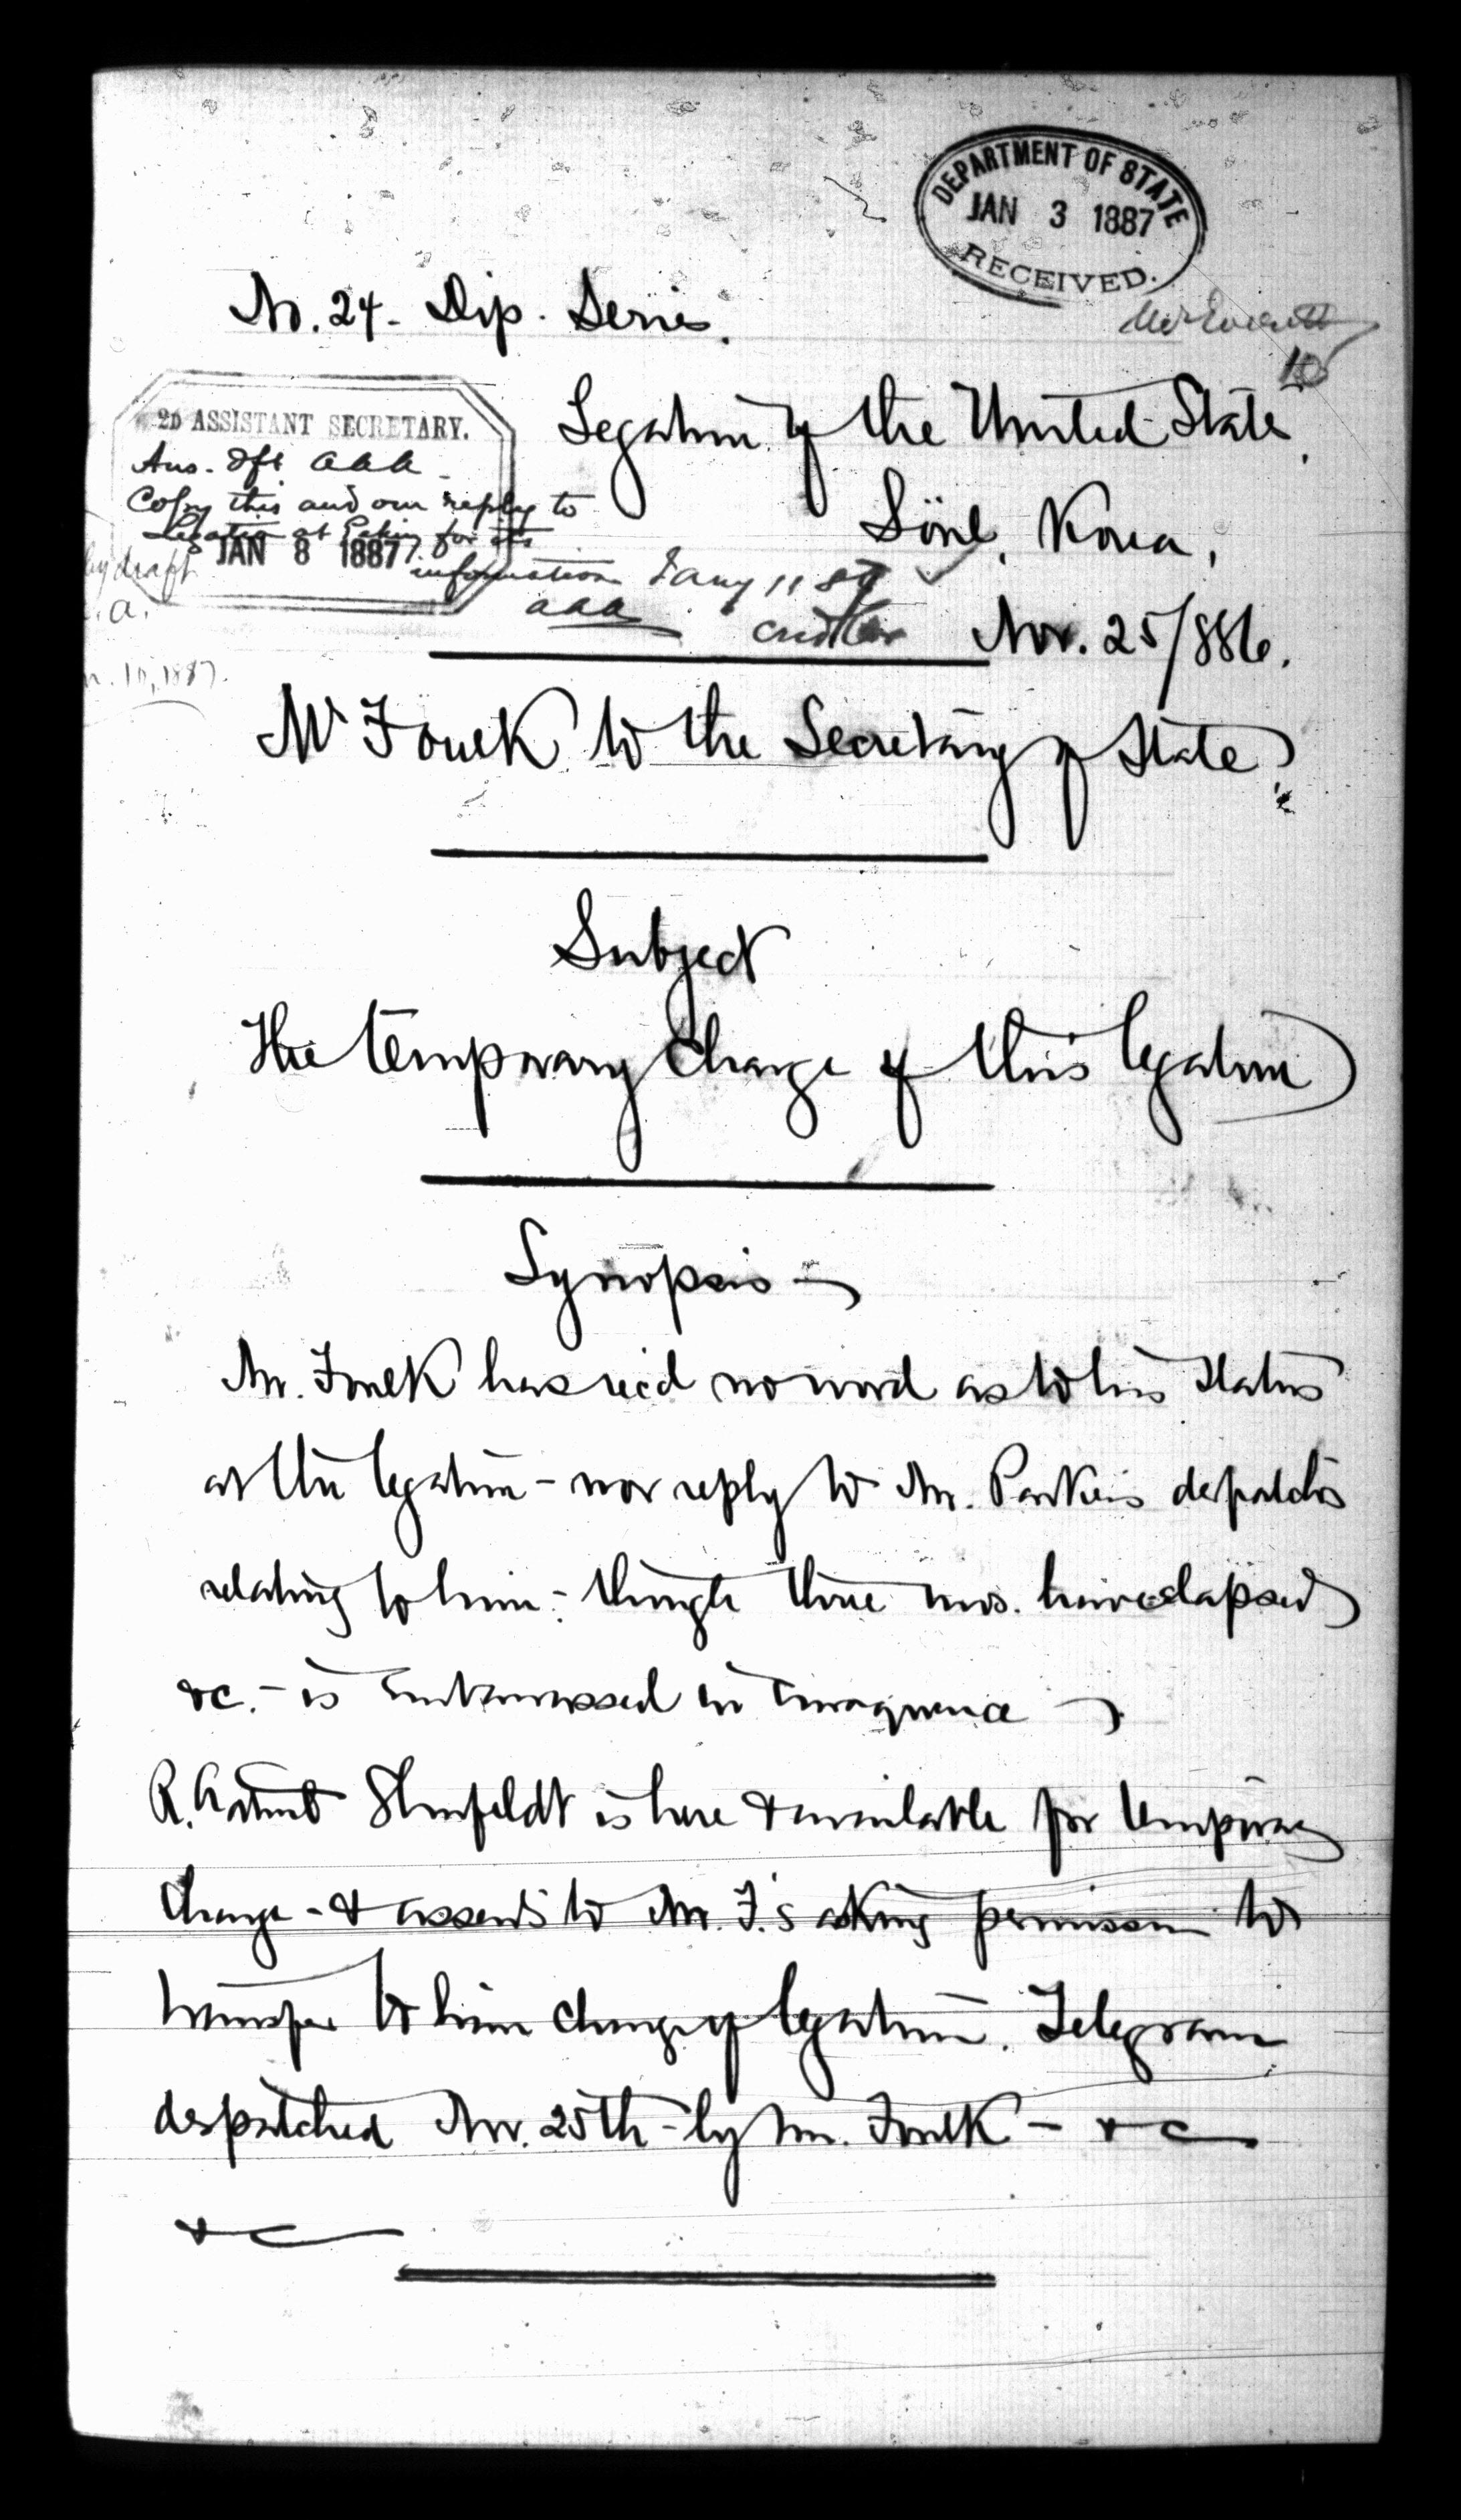 DEPARTMENT OF STATE
JAN 3 1887
RECEIVED.
No. 24 - Dip. Series.
Mr Everett
2D ASSISTANT SECRETARY.
Ans. dft aaa
Copy this and our reply to
Legation at Peking for its
information
JAN 8 1887
Jany 11 87
aaa
Legation of the United States,
Söul, Korea,
Nov. 25/886.
Mr Foulk to the Secretary of State
Subject
The temporary charge of this legation
Synopsis -
Mr. Foulk has rec'd no word as to his status
at the legation - nor reply to Mr. Parker's despatches
relating to him - though three mos. have elapsed
&c. - is embarrassed in consequence
R. Shufeldt is here & available for temporary
charge - & assents to Mr. F.'s asking permission to
transfer to him charge of legation. Telegram
despatched Nov. 25th - by Mr. Foulk - &c
&c